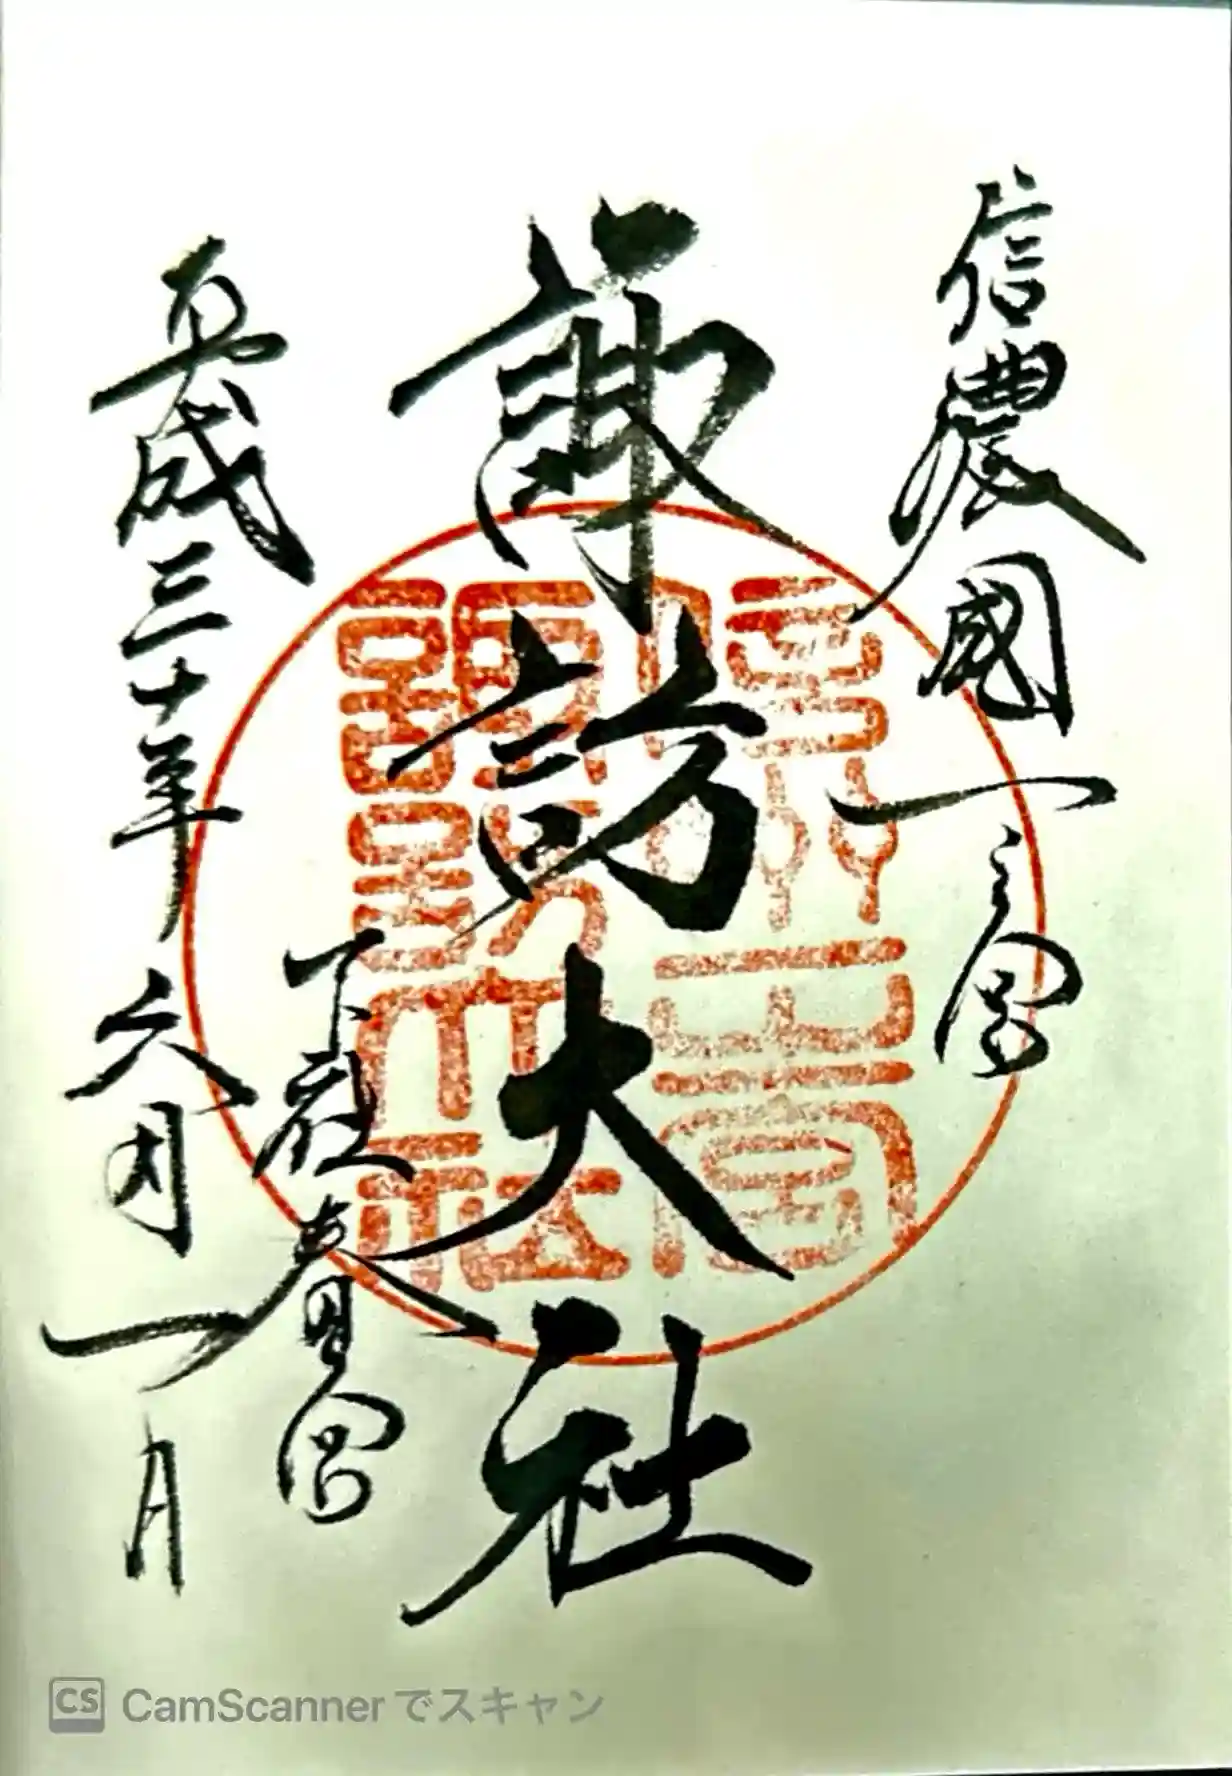 信濃國一之宮
諏訪大社
下社春宮
平成三十年六月一日
信州一之宮
諏訪大社
CS CamScanner でスキャン